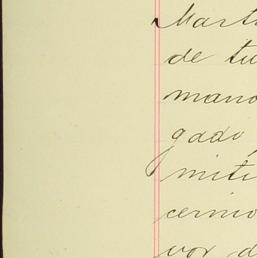 Mart
de tu
mano
gado,
miti
cerni
vor d